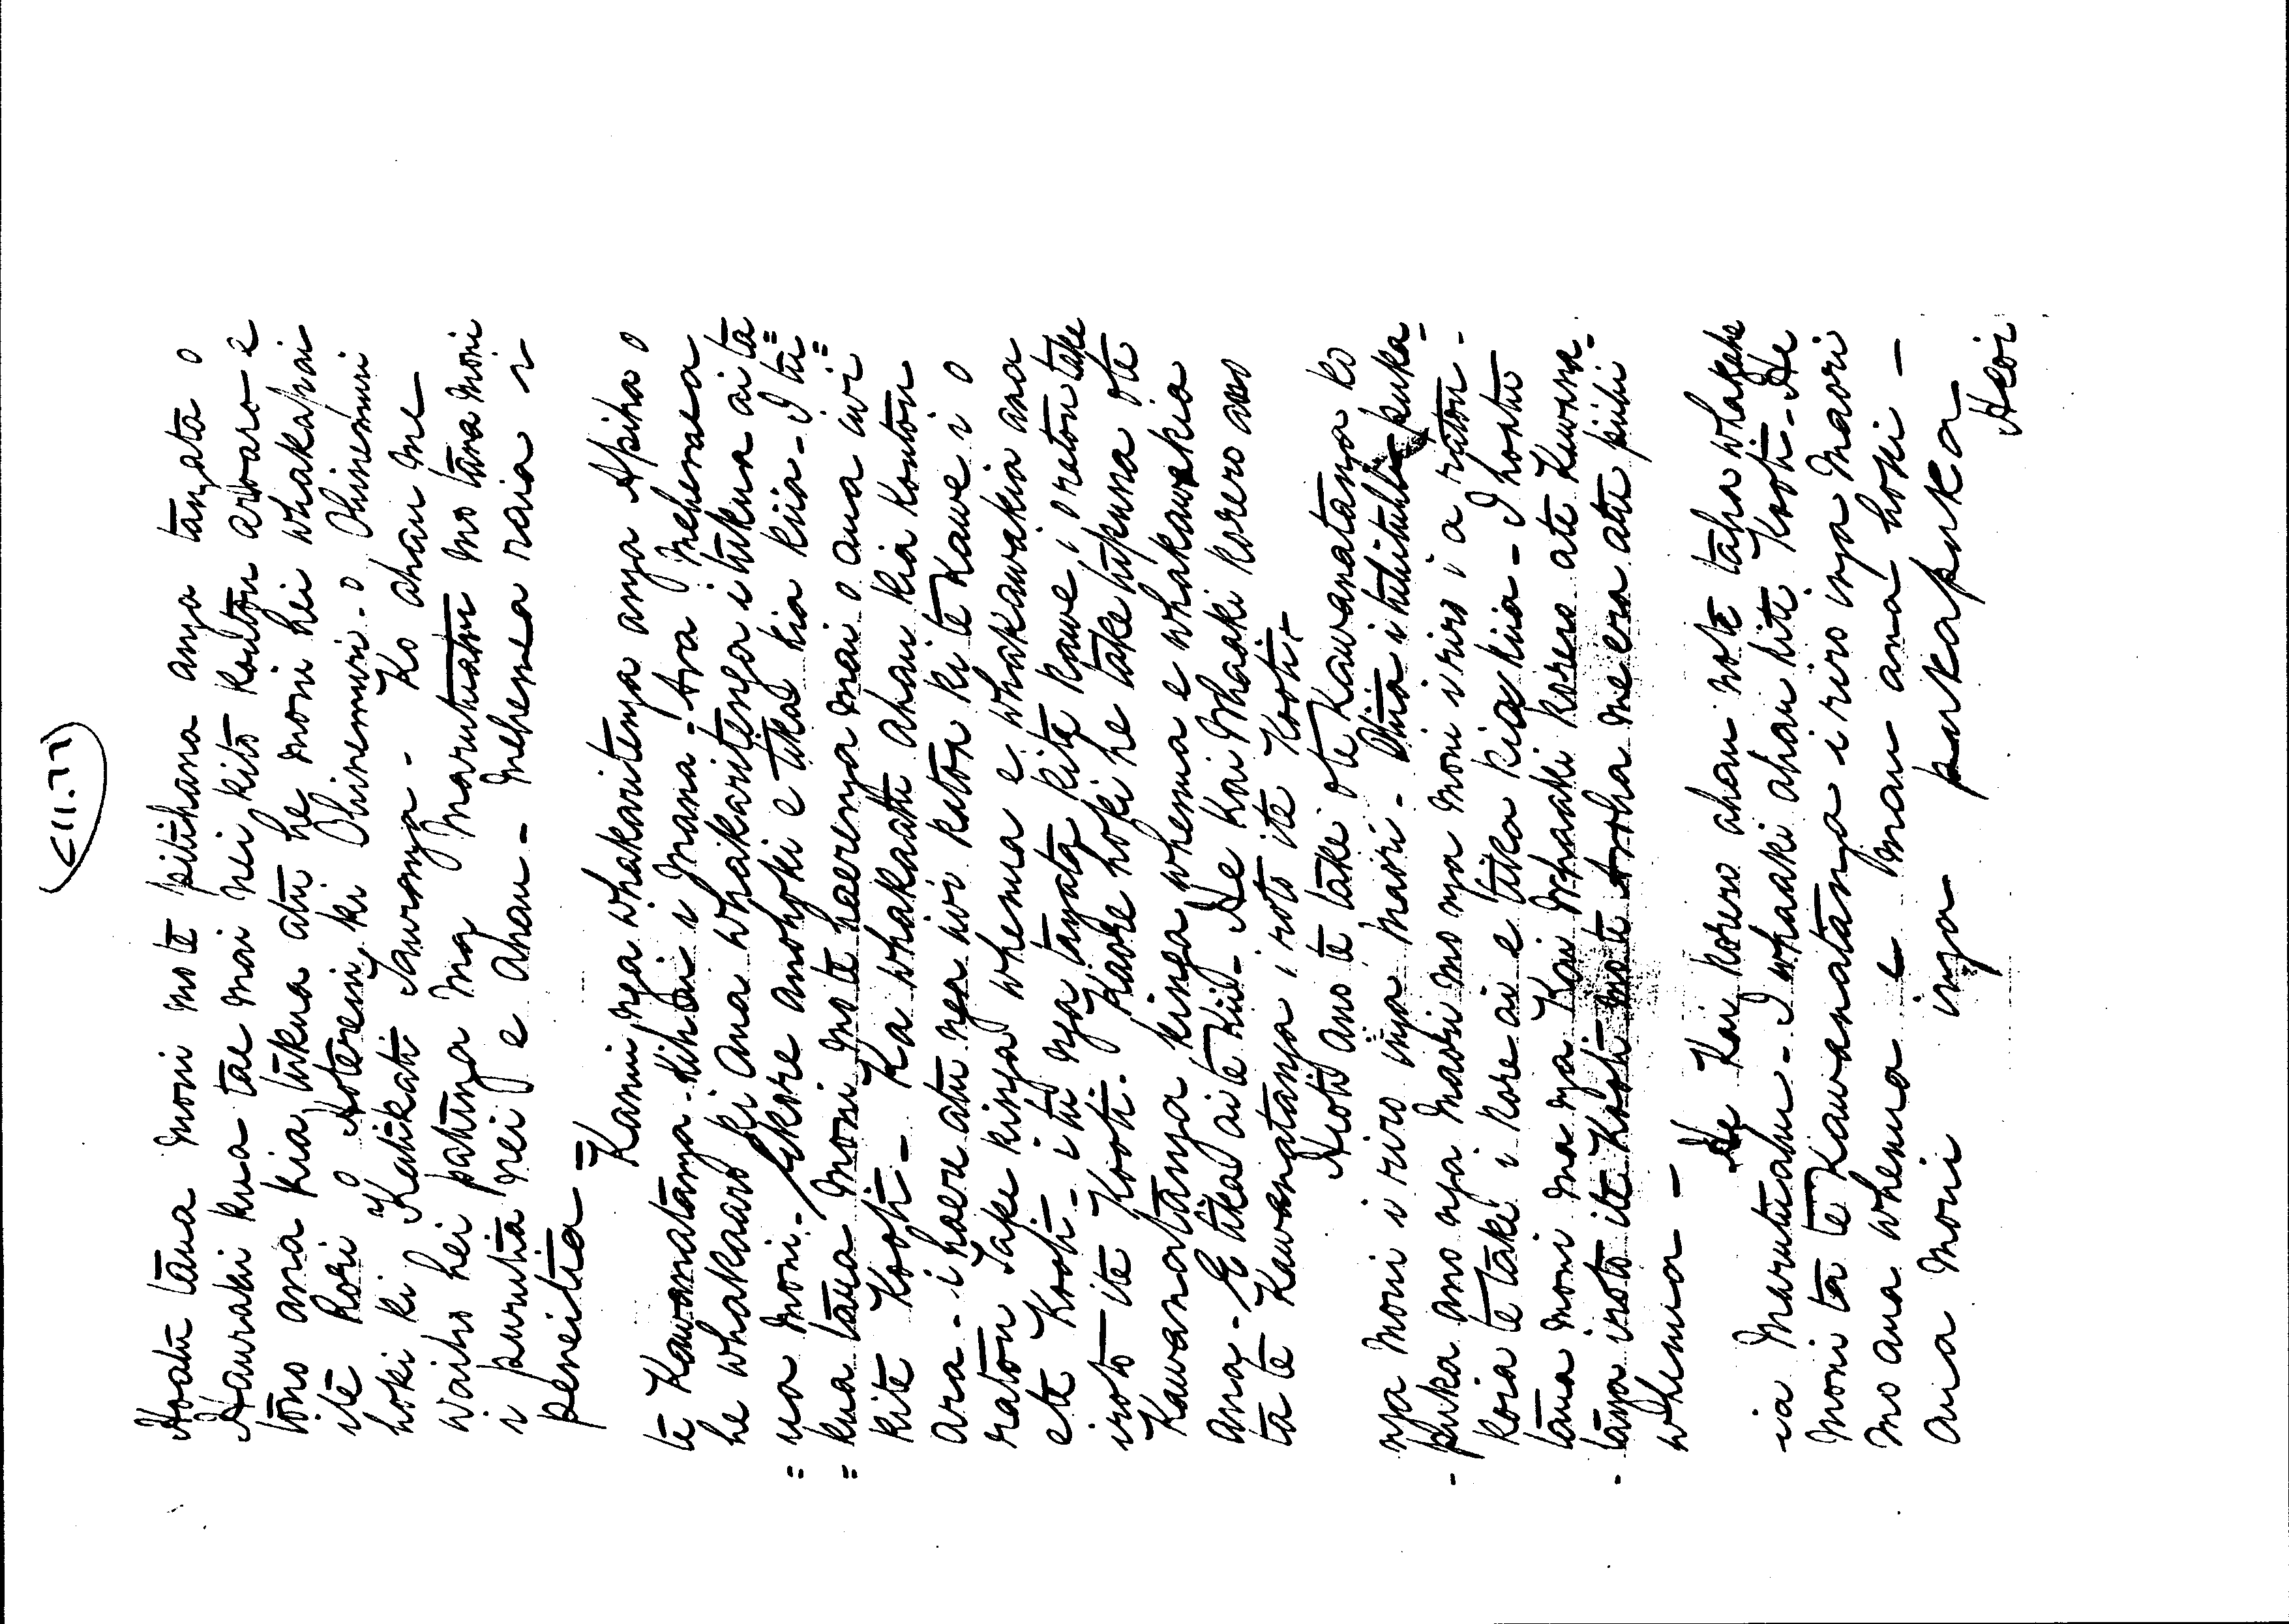 (11.77)
Hoatu taua moni mo te pitihana anga tangata o
Hauraki kua tae mai nei kito koutou aroaro e
tono ana kia tukua atu he moni hei whakapai
ite Rori o Hotereni ki Ohinemuri. o Ohinemuri
hoki ki Katikati Tauranga. Ko ahau me
waiho hei pahunga ma Marutuatu mo taua moni
i purutia nei e ahau - Mehemea raia i
peneitia =
Kanui nga whakaritenga anga Apiha o
te Kawanatanga - kihai i mana. Ara mehemea
he whakaaro ki ana whakaritenga i tukua ai ta=
=ua moni. Ekore anohoki e tika kia kiia - I tu=
=kua taua moni mo te haerenga mai o aua iwi
kite Kooti - Ka whakaatu ahau kia koutou
ara - i haere atu nga iwi katoa ki te Kawe i o
ratou Take kinga whenua e whakawakia ana
ete Kooti - i tu nga tangata kite kawe i o ratou take
iroto ite Kooti. Kaore hoki he take tupuna ote
Kawanatanga kinga whenua e whakawakia
ana - E tika ai te kiia - He Kai Whaaki korero ano
ta te Kawanatanga i roto ite Kooti -
Heoti ano te take ote Kawanatanga ko
nga moni i riro inga maori - Ohia i tuhituhi puka-
-puka ano nga maori mo nga moni i riro i a ratou -
koia te take i kore ai e tika kia kiia - I hoatu
taua moni ma nga Kai Whaaki korero ate Kawana-
-tanga iroto ite Kooti mo te Aroha me era atu piihi
whenua -
He Kai korero ahau note taha whakahe
ia Marutuahu - I whaaki ahau kite Kooti - He
moni ta te Kawanatanga i riro inga Maori
mo aua whenua e mau ana hoki -
aua moni inga pukapuka
Heoi